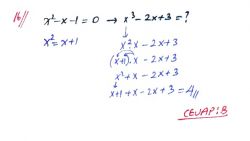 16// x²-x-1=0 → x³-2x+3=?
x²=x+1
x².x-2x+3
(x+1).x-2x+3
x²+x-2x+3
x+1+x-2x+3=4//
CEVAP:B